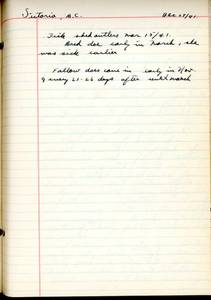 Victoria, B.C. Dec 27/41.
Dick shed antlers Mar 15/41.
Bred doe early in March, she
was sick earlier
Fallow does come in early in Nov
& every 21-26 days after until March